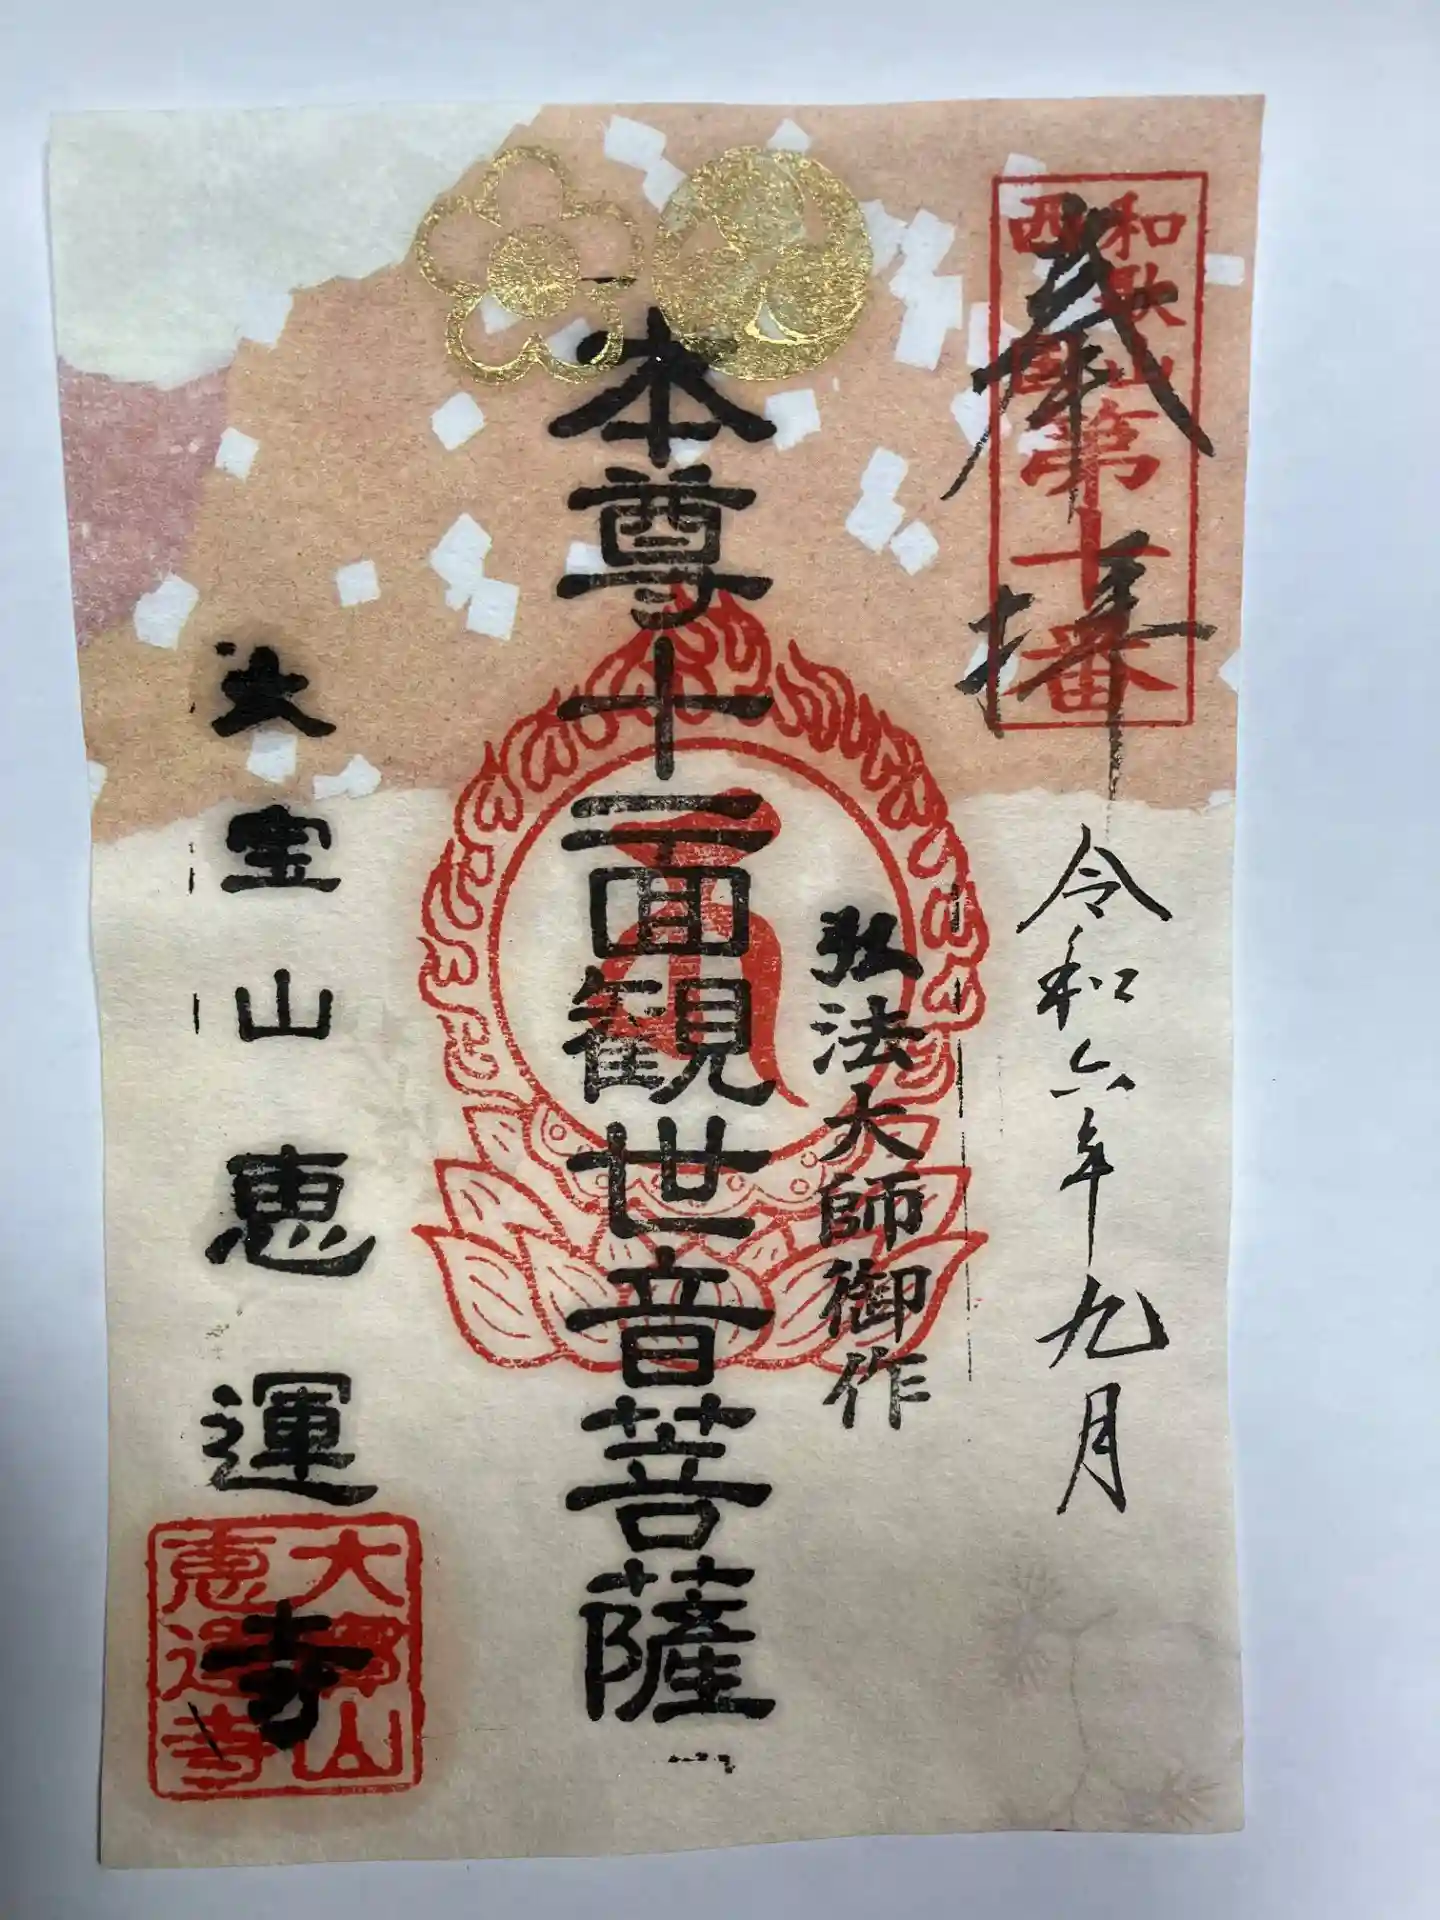 奉拝
和歌山
西国
第十番
令和六年九月
弘法大師御作
本尊十一面観世音菩薩
大宝山恵運寺
大寶山
恵運寺